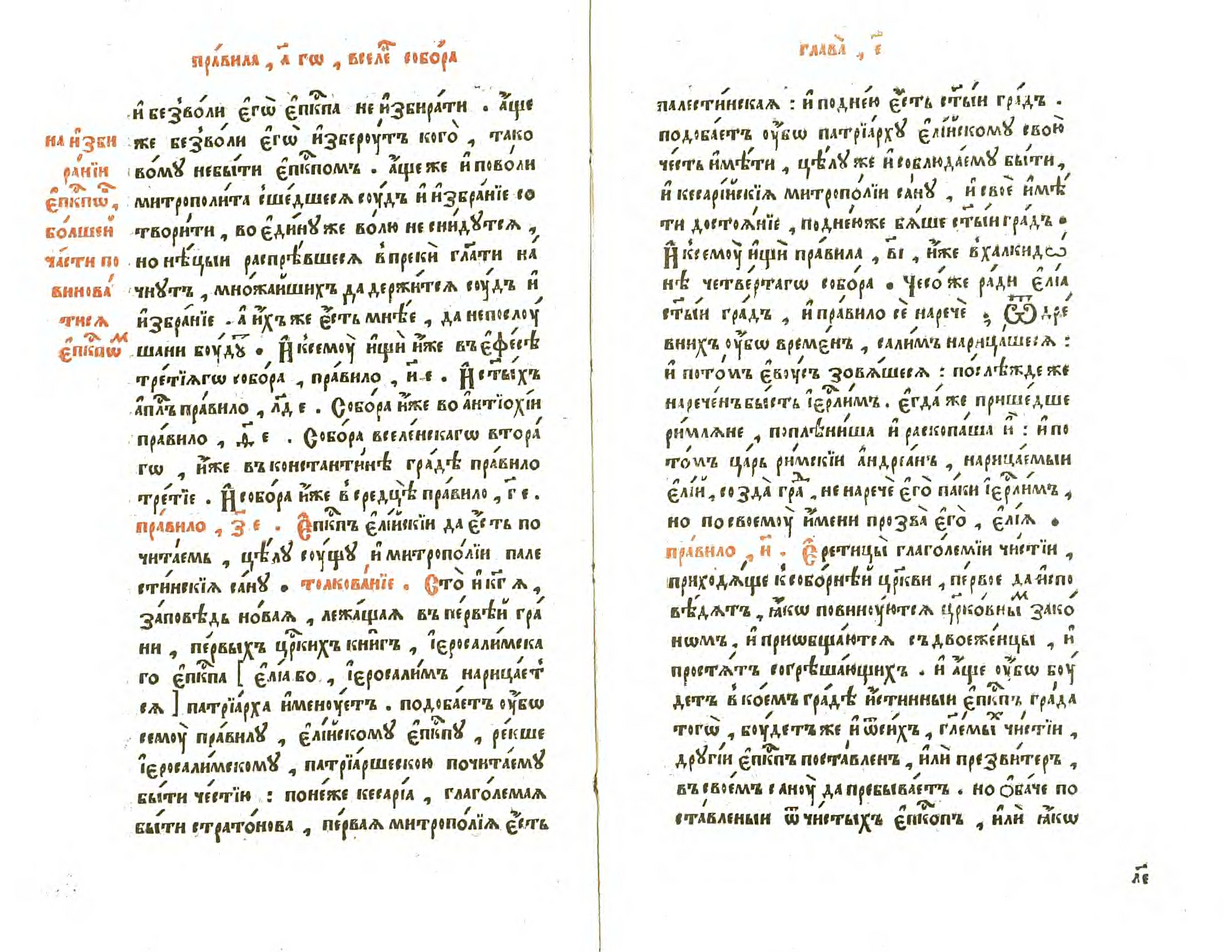 пра́вила , а҃ гѡ , вселе́н собо́ра
и҆ без̾во́ли є҆гѡ̀ є҆пкⷭ҇па не и҆збира́ти . а҆́ще
на и҆зби
ра́нїи
є҆пкⷭ҇пѡⷡ҇,
бо́лшей
ча́сти по
винова́
тисѧ
є҆пкⷭ҇пѡⷨ
же без̾во́ли є҆гѡ̀ и҆зберꙋ́тъ кого̀ , тако
во́мꙋ небы́ти є҆пкⷭ҇помъ . а҆́ще же и҆ пово́ли
митрополи́та сше́дшесѧ сꙋ́дъ и҆ и҆збра́нїе со
твори́ти , во є҆ди́нꙋ же во́лю не сни́дꙋтсѧ ,
но нѣ́цыи распрѣ́вшесѧ в̾прекѝ гл҃ати на
чнꙋ́тъ , мно́жайшихъ да держи́тсѧ сꙋ́дъ и҆
и҆збра́нїе . а и҆́хъ же є҆́сть мнѣ́е , да непослꙋ́
шани бꙋ́дꙋ . И҆ ксемꙋ̀ и҆щѝ и҆́же въ є҆фе́сѣ
тре́тїѧгѡ собо́ра , пра́вило , и҃ е . И҆ ст҃ы́хъ
а҆пл҃ъ пра́вило , л҃д е . Собо́ра и҆́же во а҆нтїохі́и
пра́вило , д҃ е . Собо́ра вселе́нскагѡ втора́
гѡ , и҆́же въ константи́нѣ гра́дѣ пра́вило
тре́тїе . И҆ собо́ра и҆́же в̾середцѣ̀ пра́вило , г҃ е .
пра́вило , з҃ е . Є҆пкⷭ҇пъ є҆лі́йскїй да є҆́сть по
чита́емь , цѣ́лꙋ сꙋ́щꙋ и҆ митропо́лїи пале
сти́нскїѧ са́нꙋ . толкова́нїе . Сто̀ и҆ к҃г ѧ ,
за́повѣдь но́ваѧ , лежа́щаѧ въ пе́рвѣй гра́
ни , пе́рвыхъ цр҃кихъ кни́гъ , і҆еросали́мска
го є҆пкⷭ҇па [ є҆лі́а бо , і҆еросали́мъ нарица́ет
сѧ ] патрїа́рха и҆менꙋ́етъ . подоба́етъ ᲂу҆́бѡ
семꙋ̀ пра́вилꙋ , є҆лі́йскомꙋ є҆пкⷭ҇пꙋ , ре́кше
і҆еросали́мскомꙋ , патрїа́ршескою почита́емꙋ
бы́ти че́стїю : поне́же кесарі́а , глаго́лемаѧ
бы́ти страто́нова , пе́рваѧ митропо́лїѧ є҆́сть
глава̀ , е҃
палести́нскаѧ : и҆ подне́ю є҆́сть ст҃ы́и гра́дъ .
подоба́етъ ᲂу҆́бѡ патрїа́рхꙋ є҆лі́йскомꙋ свою̀
че́сть и҆мѣ́ти , цѣ́лꙋ же и҆ соблюда́емꙋ бы́ти ,
и҆ кесарі́йскїѧ митропо́лїи са́нꙋ , и҆ своѐ и҆мѣ́
ти досто́ѧнїе , подне́юже бѧ́ше ст҃ы́и гра́дъ .
И҆ ксемꙋ̀ и҆щѝ пра́вила , в҃і , и҆́же в̾халкидѡ́
нѣ четве́ртагѡ собо́ра . Чесо́ же ра́ди є҆лі́а
ст҃ы́и гра́дъ , и҆ пра́вило сѐ наречѐ ; Ѿ дре́
внихъ ᲂу҆́бѡ време́нъ , сали́мъ нарица́шесѧ :
и҆ пото́мъ є҆вꙋ́съ зовѧ́шесѧ : послѣ́жде же
нарече́нъ бы́сть і҆ерл҃и́мъ . є҆гда́ же прише́дше
ри́млѧне , поплѣни́ша и҆ раскопа́ша и҆̀ : и҆ по
то́мъ ца́рь ри́мскїи а҆ндреа́нъ , нарица́емыи
є҆лі́й , созда̀ гра́д , не наречѐ є҆го̀ па́ки і҆ерл҃и́мъ ,
но посвоемꙋ̀ и҆́мени прозва̀ є҆го̀ , є҆лі́ѧ .
пра́вило , и҃ . Є҆ретицы̀ глаго́лемїи чи́стїи ,
приходѧ́ще к̾собо́рнѣй цр҃кви , пе́рвое да и҆спо
вѣ́дѧтъ , ꙗ҆́кѡ повинꙋ́ютсѧ цр҃ко́внымⷨ зако́
нѡмъ , и҆ прїѡбща́ютсѧ съ двоеже́нцы , и҆
простѧ́тъ согрѣша́ющихъ . и҆ а҆́ще ᲂу҆́бѡ бꙋ́
детъ в̾ко́емъ гра́дѣ и҆́стинныи є҆пкⷭ҇пъ гра́да
того̀ , бꙋ́детъ же и҆ ѿсихъ , гл҃емыⷯ чи́стїи ,
дрꙋгі́й є҆пкⷭ҇пъ поста́вленъ , и҆лѝ презви́теръ ,
въ свое́мъ санꙋ̀ да пребыва́етъ . но ѻ҆ба́че по
ста́вленыи ѿ чи́стыхъ є҆пкⷭ҇опъ , и҆лѝ ꙗ҆́кѡ
л҃е